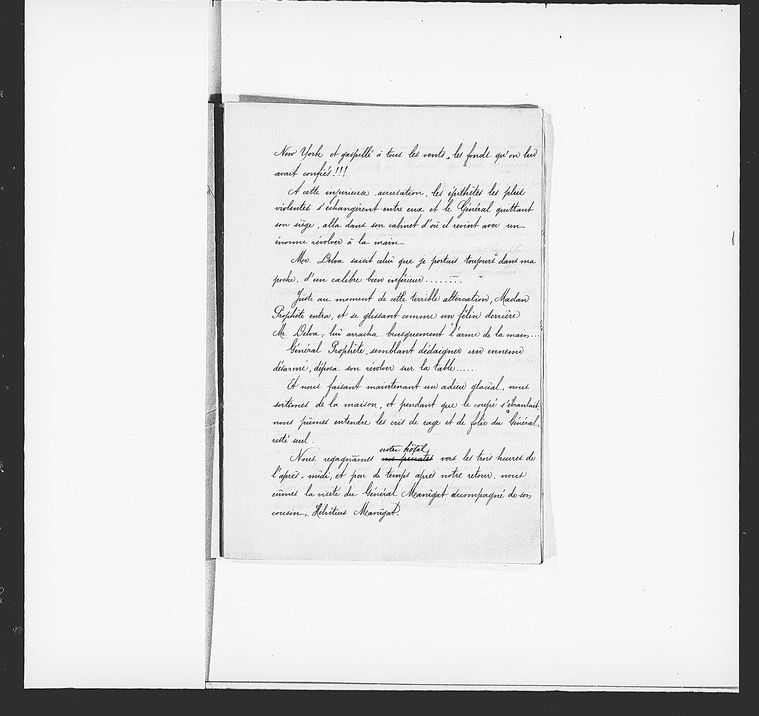 New York et gaspillé à tous les vents, les fonds qu'on lui
avait confiés!!!
A cette injurieuse accusation, les épithètes les plus
violentes s'échangèrent entre eux et le Général quittant
son siège, alla dans son cabinet d'où il revint avec un
énorme révolver à la main...
Mr. Delva saisit celui que je portais toujours dans ma
poche, d'un calibre bien inférieur........
Juste au moment de cette terrible altercation, Madam
Prophète entra, et se glissant comme un félin derrière
Mr Delva, lui arracha brusquement l'arme de la main...
Général Prophète, semblant dédaigner un ennemi
désarmé, déposa son révolver sur la table.....
Et nous faisant maintenant un adieu glacial, nous
sortîmes de la maison, et pendant que le coupé s'ébranlait
nous pûmes entendre les cris de rage et de folie du Général,
resté seul.
notre hôtel
Nous regagnâmes nos pénates vers les trois heures de
l'après-midi, et peu de temps après notre retour, nous
eûmes la visite du Général Manigat accompagné de son
cousin, Helvétius Manigat.